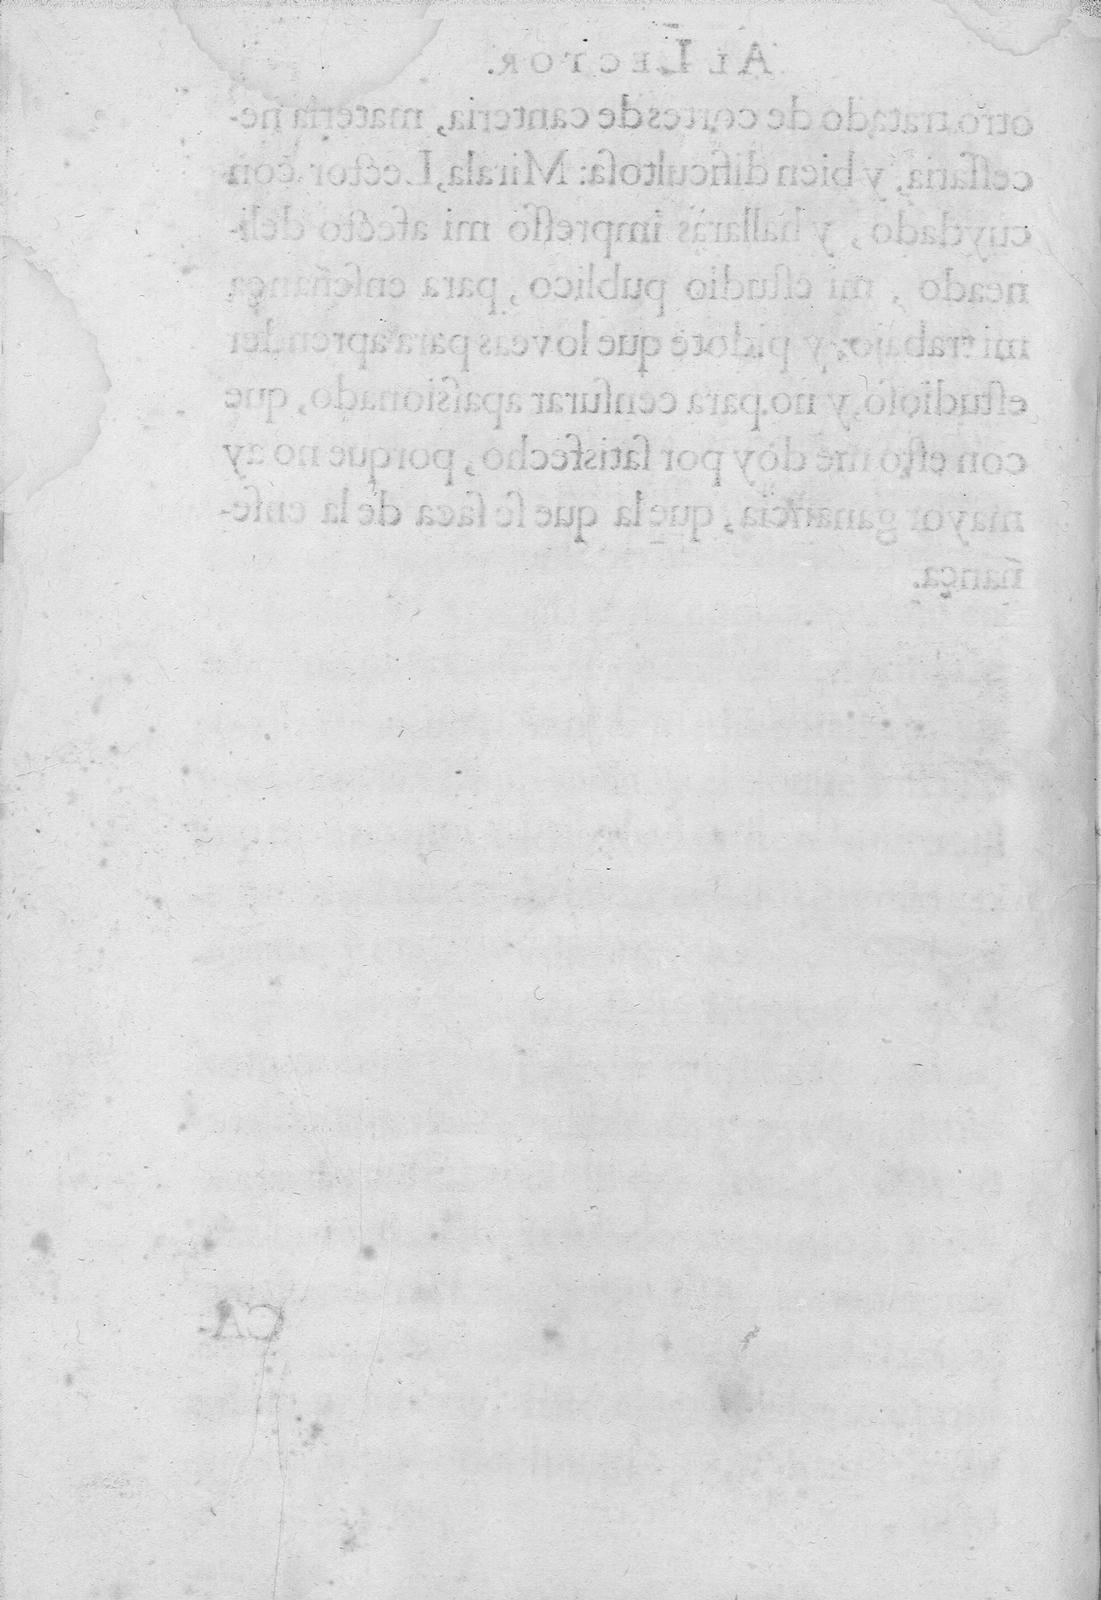 AL LECTOR.
otro tratado de cortes de canteria, materia ne-
ceſſaria, y bien dificultoſa: Mirala, Lector con
cuydado, y hallarás impreſſo mi afecto deli-
neado, mi eſtudio publico, para enſeñança
mi trabajo, y pidote que lo veas para aprender
eſtudioſo, y no para cenſurar apaſsionado, que
con eſto me doy por ſatisfecho, porque no ay
mayor ganancia, que la que ſe ſaca de la enſe-
ñança.
CA-